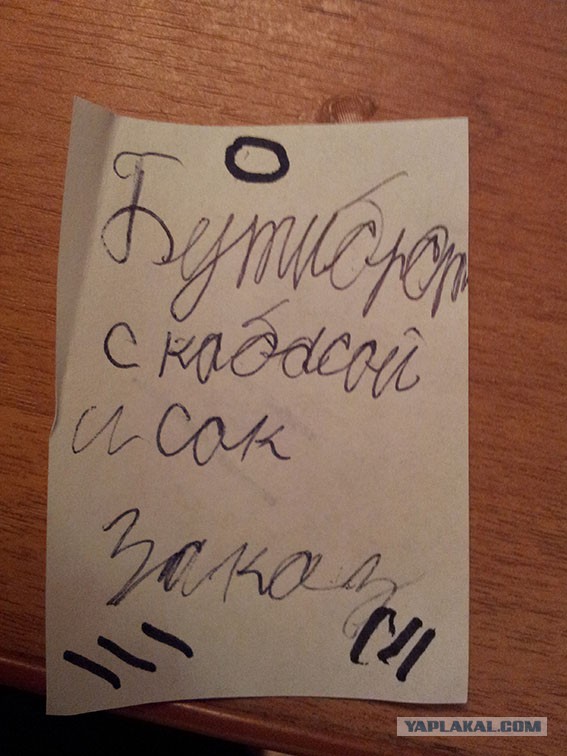 Бутиброт
с кабасой
и сок
Заказ
YAPLAKAL.COM